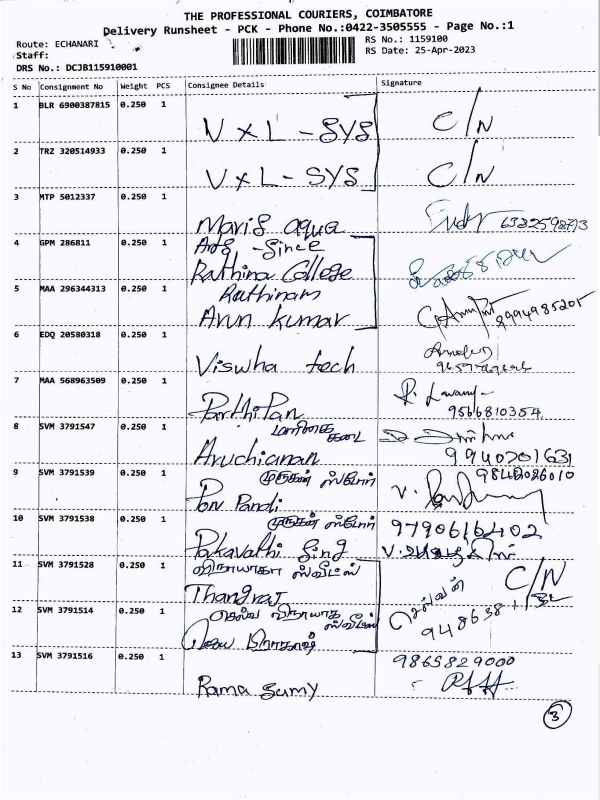 THE PROFESSIONAL COURIERS, COIMBATORE
Delivery Runsheet - PCK - Phone No.:0422-3505555 - Page No.:1
Route: ECHANARI
RS No.: 1159100
Staff:
RS Date: 25-Apr-2023
DRS No.: DCJB115910001
S No Consignment No Weight PCS Consignee Details Signature
1 BLR 6900387815 0.250 1
V x L - SYS C/N
2 TRZ 320514933 0.250 1
V x L - SYS C/N
3 MTP 5012337 0.250 1
Maris aqua
4 GPM 286811 0.250 1
Arts - Since
Rathina College
5 MAA 296344313 0.250 1
Rathinam
Arun kumar 8994985205
6 EDQ 20580318 0.250 1
Viswha tech
7 MAA 568963509 0.250 1
Parthipan 9566810354
8 SVM 3791547 0.250 1
மாளிகை
கடை
Aruchianan 9940201631
9 SVM 3791539 0.250 1 9842026010
முருகன் ஸ்டோர்
Pon Pandi
10 SVM 3791538 0.250 1
முருகன் ஸ்டோர் 9790616402
Pakavathi Sing
11 SVM 3791528 0.250 1
விநாயகா ஸ்வீட்ஸ் C/N
Thangraj
12 SVM 3791514 0.250 1
செல்வ விநாயக
ஸ்வீட்ஸ்
செல்வன்
13 SVM 3791516 0.250 1 9865829000
Rama Samy
3